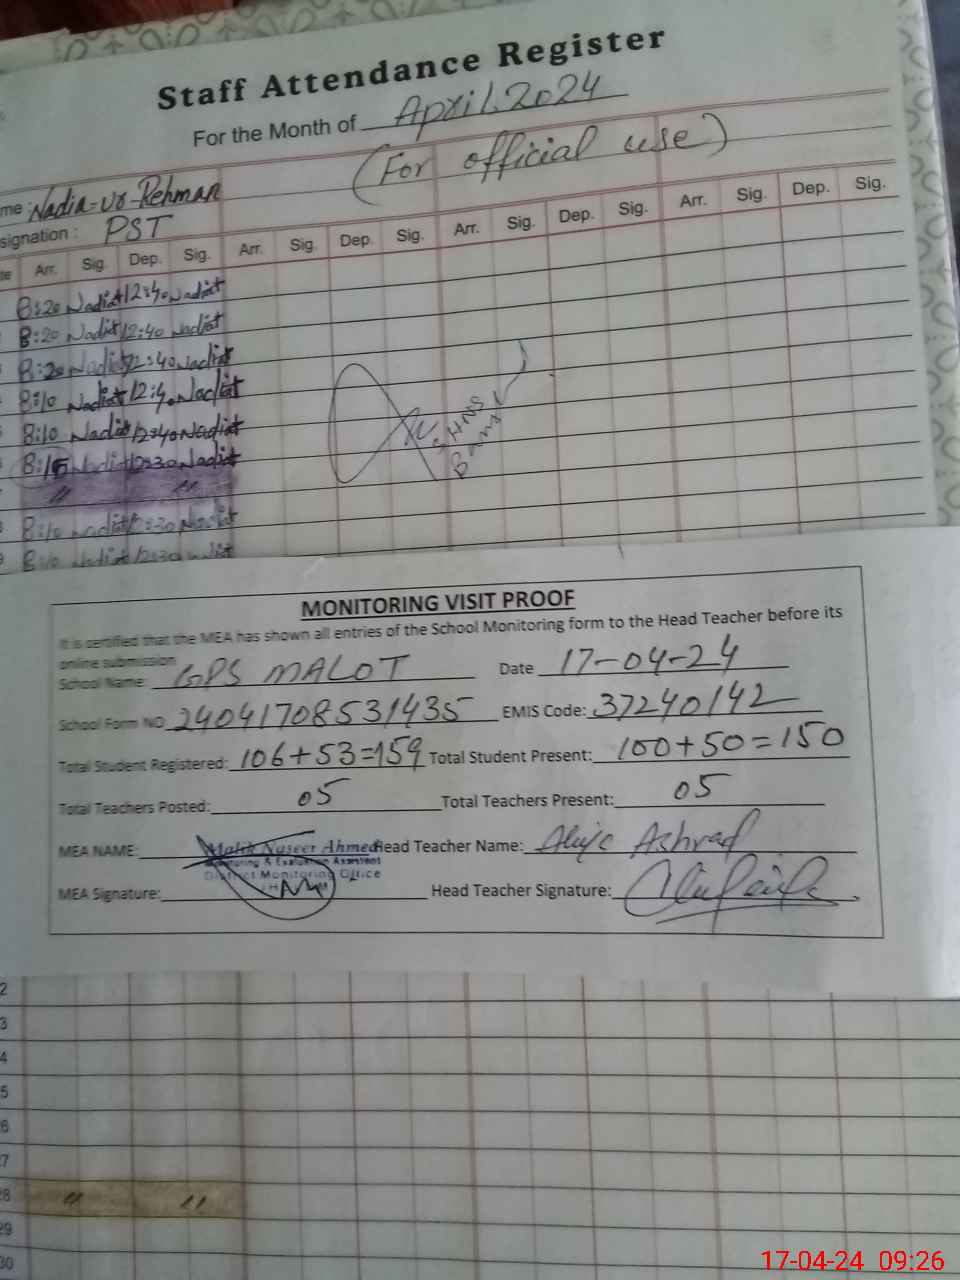 Staff Attendance Register
For the Month of April. 2024
(For official use)
me: Nadia-ur-Rehman
signation: PST
te Arr. Sig. Dep. Sig. Arr. Sig. Dep. Sig. Arr. Sig. Dep. Sig. Arr. Sig. Dep. Sig.
8:20 Nadia 12:40 Nadia
8:20 Nadia 12:40 Nadia
8:20 Nadia 12:40 Nadia
8:10 Nadia 12:40 Nadia
8:10 Nadia 12:40 Nadia
8:15 Nadia 12:30 Nadia
" "
8:10 Nadia 12:30 Nadia
8:10 Nadia 12:30
SHNS
MONITORING VISIT PROOF
It is certified that the MEA has shown all entries of the School Monitoring form to the Head Teacher before its
online submission
School Name: GPS MALOT Date 17-04-24
School Form NO 24041708531435 EMIS Code: 37240142
Total Student Registered: 106+53=159 Total Student Present: 100+50=150
Total Teachers Posted: 05 Total Teachers Present: 05
MEA NAME: Malik Naseer Ahmed Head Teacher Name: Ashraf
Monitoring & Evaluation Assistant
District Monitoring Office
MEA Signature: Head Teacher Signature:
2
3
4
5
6
7
8 " "
29
30
17-04-24 09:26